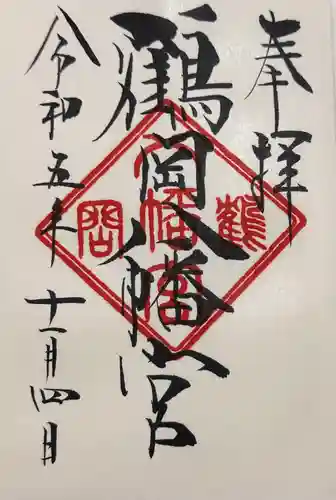 奉拝
鶴岡八幡宮
令和五年十一月四日
鶴
岡